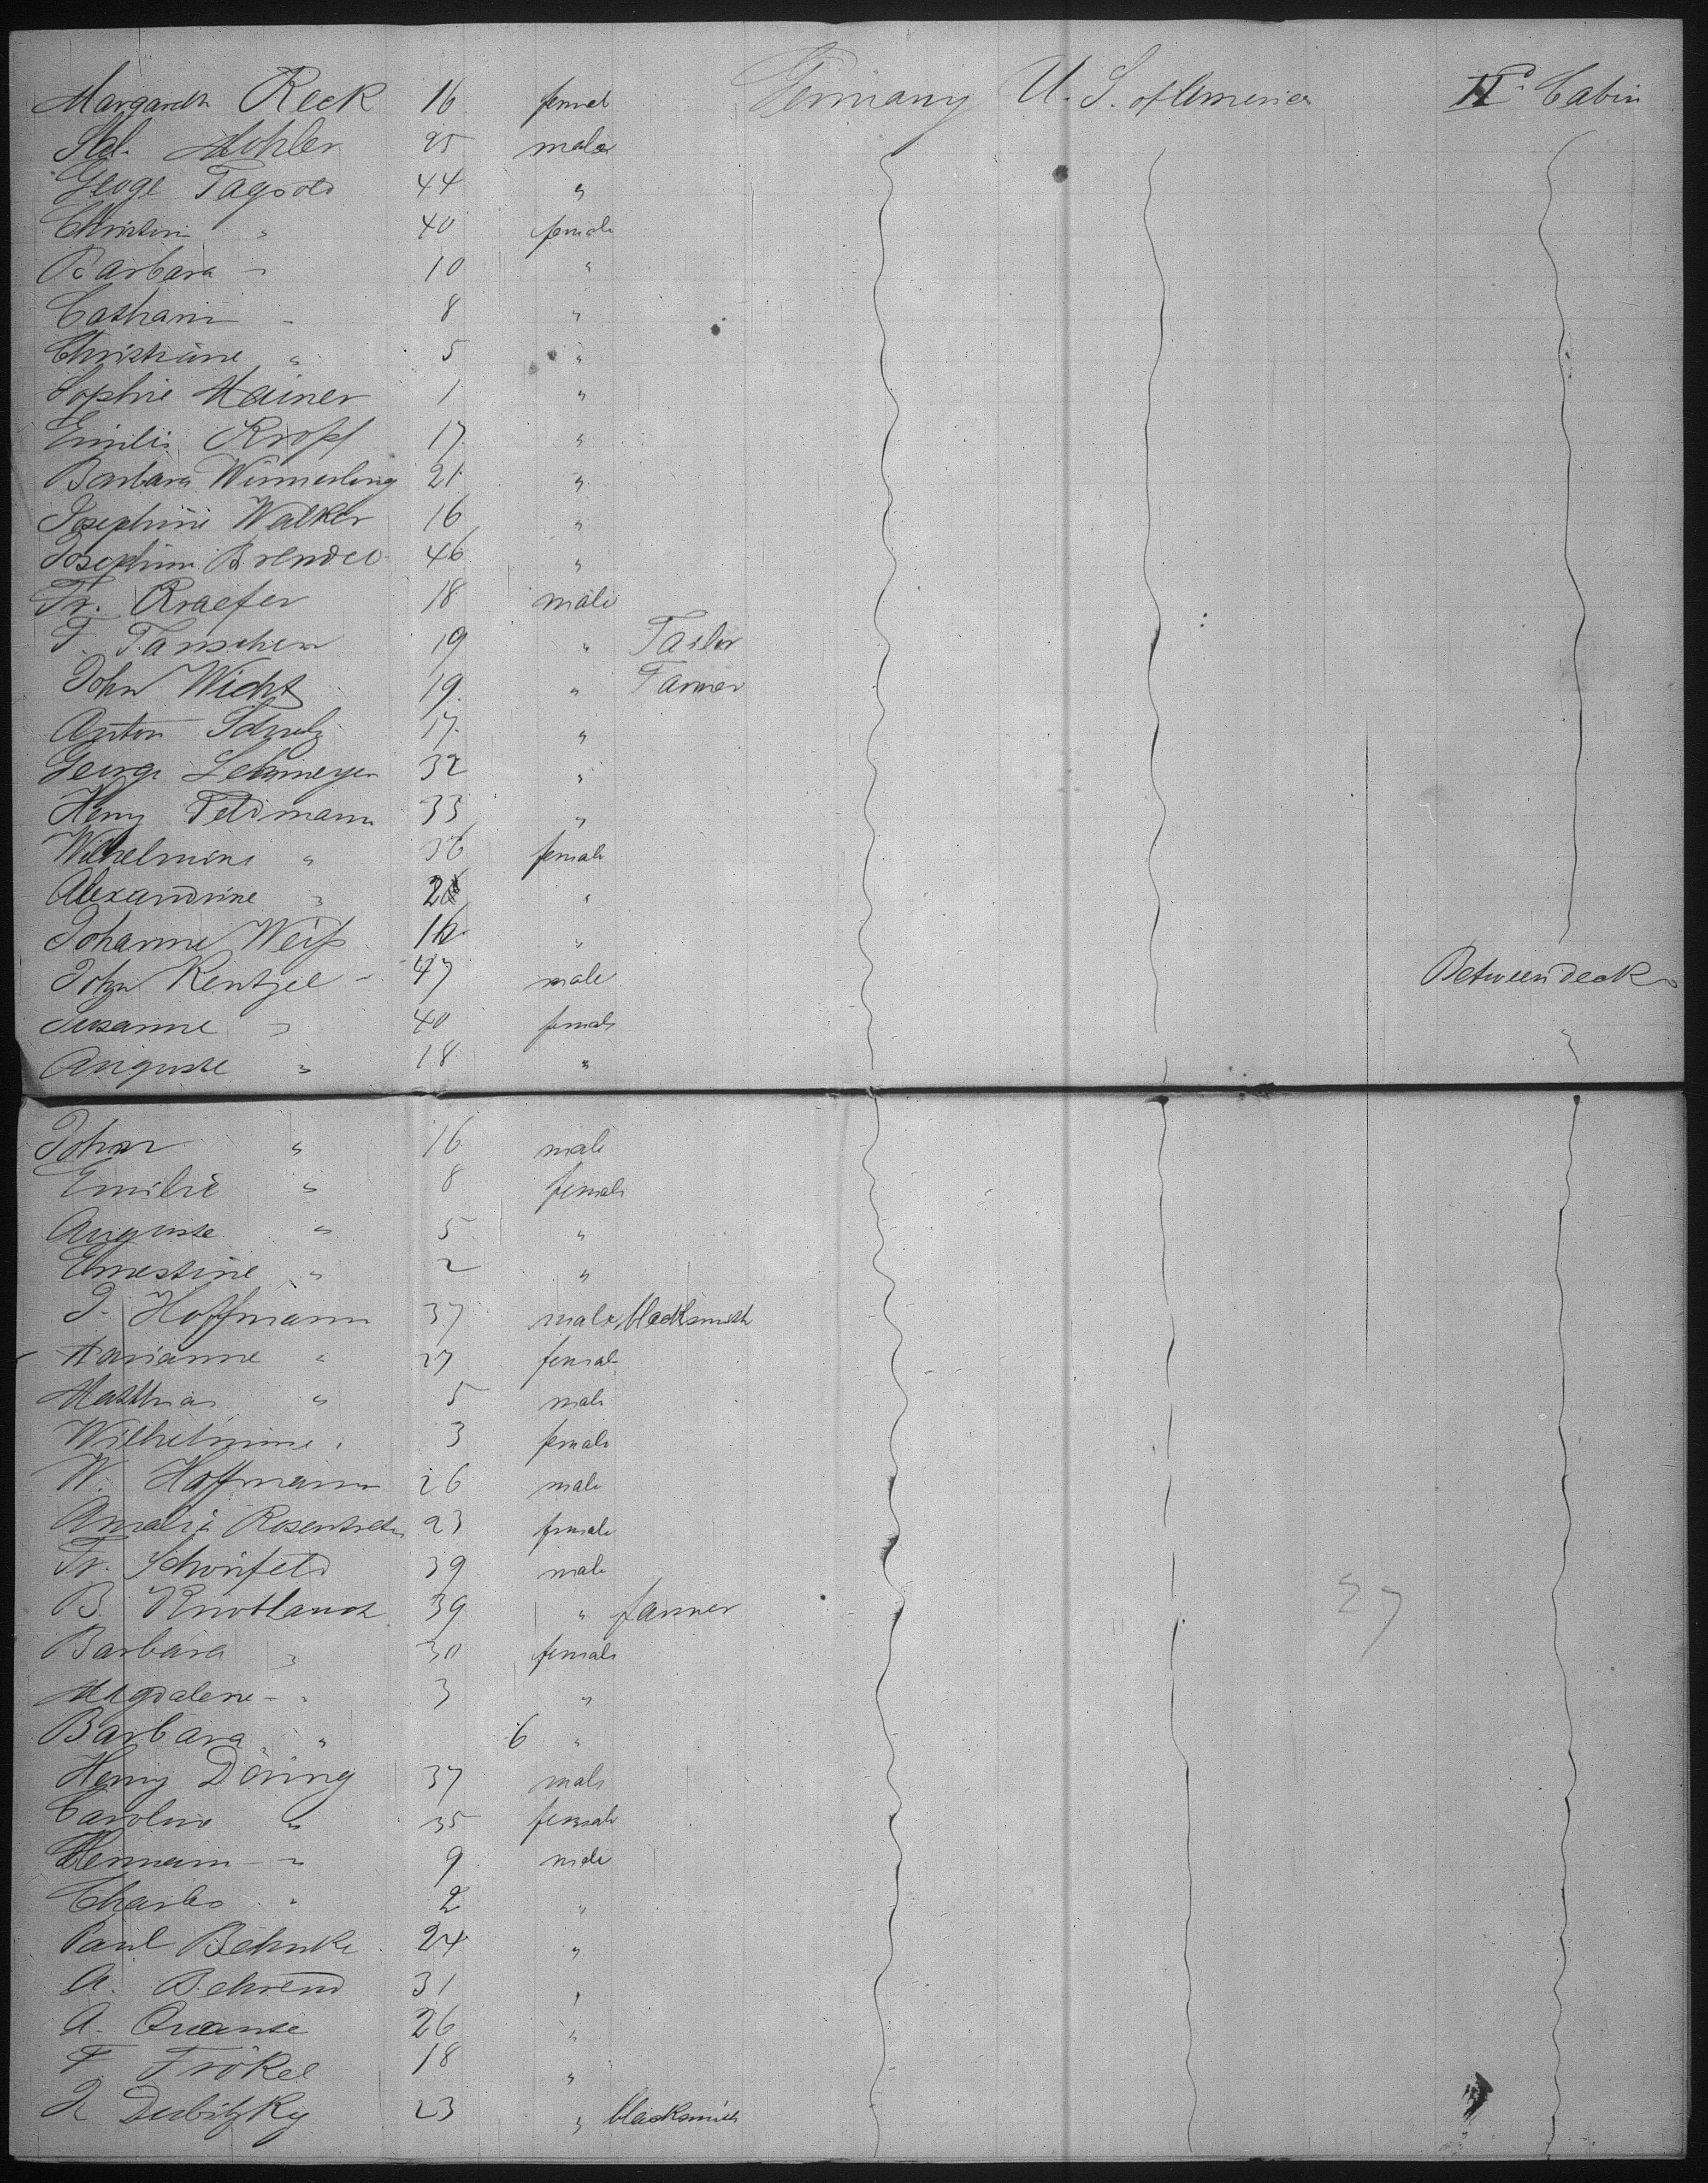 Margareth Reck 16 femal Germany U. S. of America II. Cabin
Ad. Mohler 25 male
Geoge Tagsold 44 "
Christin " 40 female
Barbara " 10 "
Catharin " 8 "
Christiane " 5 "
Sophie Mainer 1 "
Emilie Kropf 17 "
Barbara Wimmerling 21 "
Josephine Walker 16 "
Josephine Brendel 46 "
Fr. Kraefer 18 male
F. Tanscher 19 " Tailor
John Wicht 19 " Farmer
Anton Schulz 17 "
George Lehmeyer 32 "
Henry Feldmann 33 "
Wilhelmine " 36 female
Alexandrine "
Johanne Weiß "
John Kentzel 47 male Between deck
Susanne " 40 female
Auguste " 18 "
Johan " 16 male
Emilie " 8 female
Auguste " 5 "
Ernestine " 2 "
J. Hoffmann 37 male blacksmith
Marianne " 27 female
Matthias " 5 male
Wilhelmine " 3 female
W. Hoffmann 26 male
Amalie Rosentreter 23 female
Fr. Schönfeld 39 male
B. Knoblauch 39 " farmer
27
Barbara " 30 female
Magdalene " 3 "
Barbara " 6 "
Henry Döring 37 male
Caroline " 35 female
Hermann " 9 male
Charles " 2 "
Paul Behnke 24 "
A. Behrend 31 "
A. Quanse 26 "
F. Frökel 18 "
J. Dubitzky 23 " blacksmith